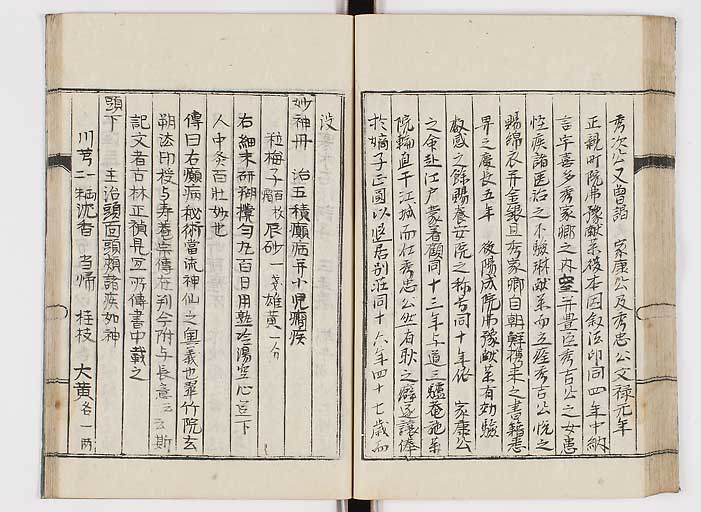 秀次公又曾謁 家康公及秀忠公文禄元年
正親町院弗豫献薬後本因叙法印同四年中納
言宇喜多秀家卿之内室并豊臣秀吉公之女患
怪疾諸医治之不験琳献薬而立痊秀吉公悦之
賜綿衣并金銀且秀家卿自朝鮮携来之書籍悉
畀之慶長五年 後陽成院弗豫献薬有効験
叡感之餘賜養安院之称号同十年依 家康公
之命赴江戸蒙眷顧同十三年与道三驢菴施薬
院輪直于江城而仕秀忠公然有耿之癖遂譲俸
於嫡子正圓以退居別荘同十六年四十七歳而
没
妙神丹 治五積癲病并小児癇疾
粒梅子 辰砂一 雄黄一分
右細末研糊攪匀九百日用熟冷湯空心豆下
人中灸百壮妙也
傳曰右癲病秘術當流神仙之奥義也翠竹院玄
朔法印授与寿菴宗傳在判今附与長意云云斯
記文者古林正禎見宜所傳書中載之
頭下 主治頭面頭頬諸疾如神
川芎二 沈香 当帰 桂枝 大黄各一両